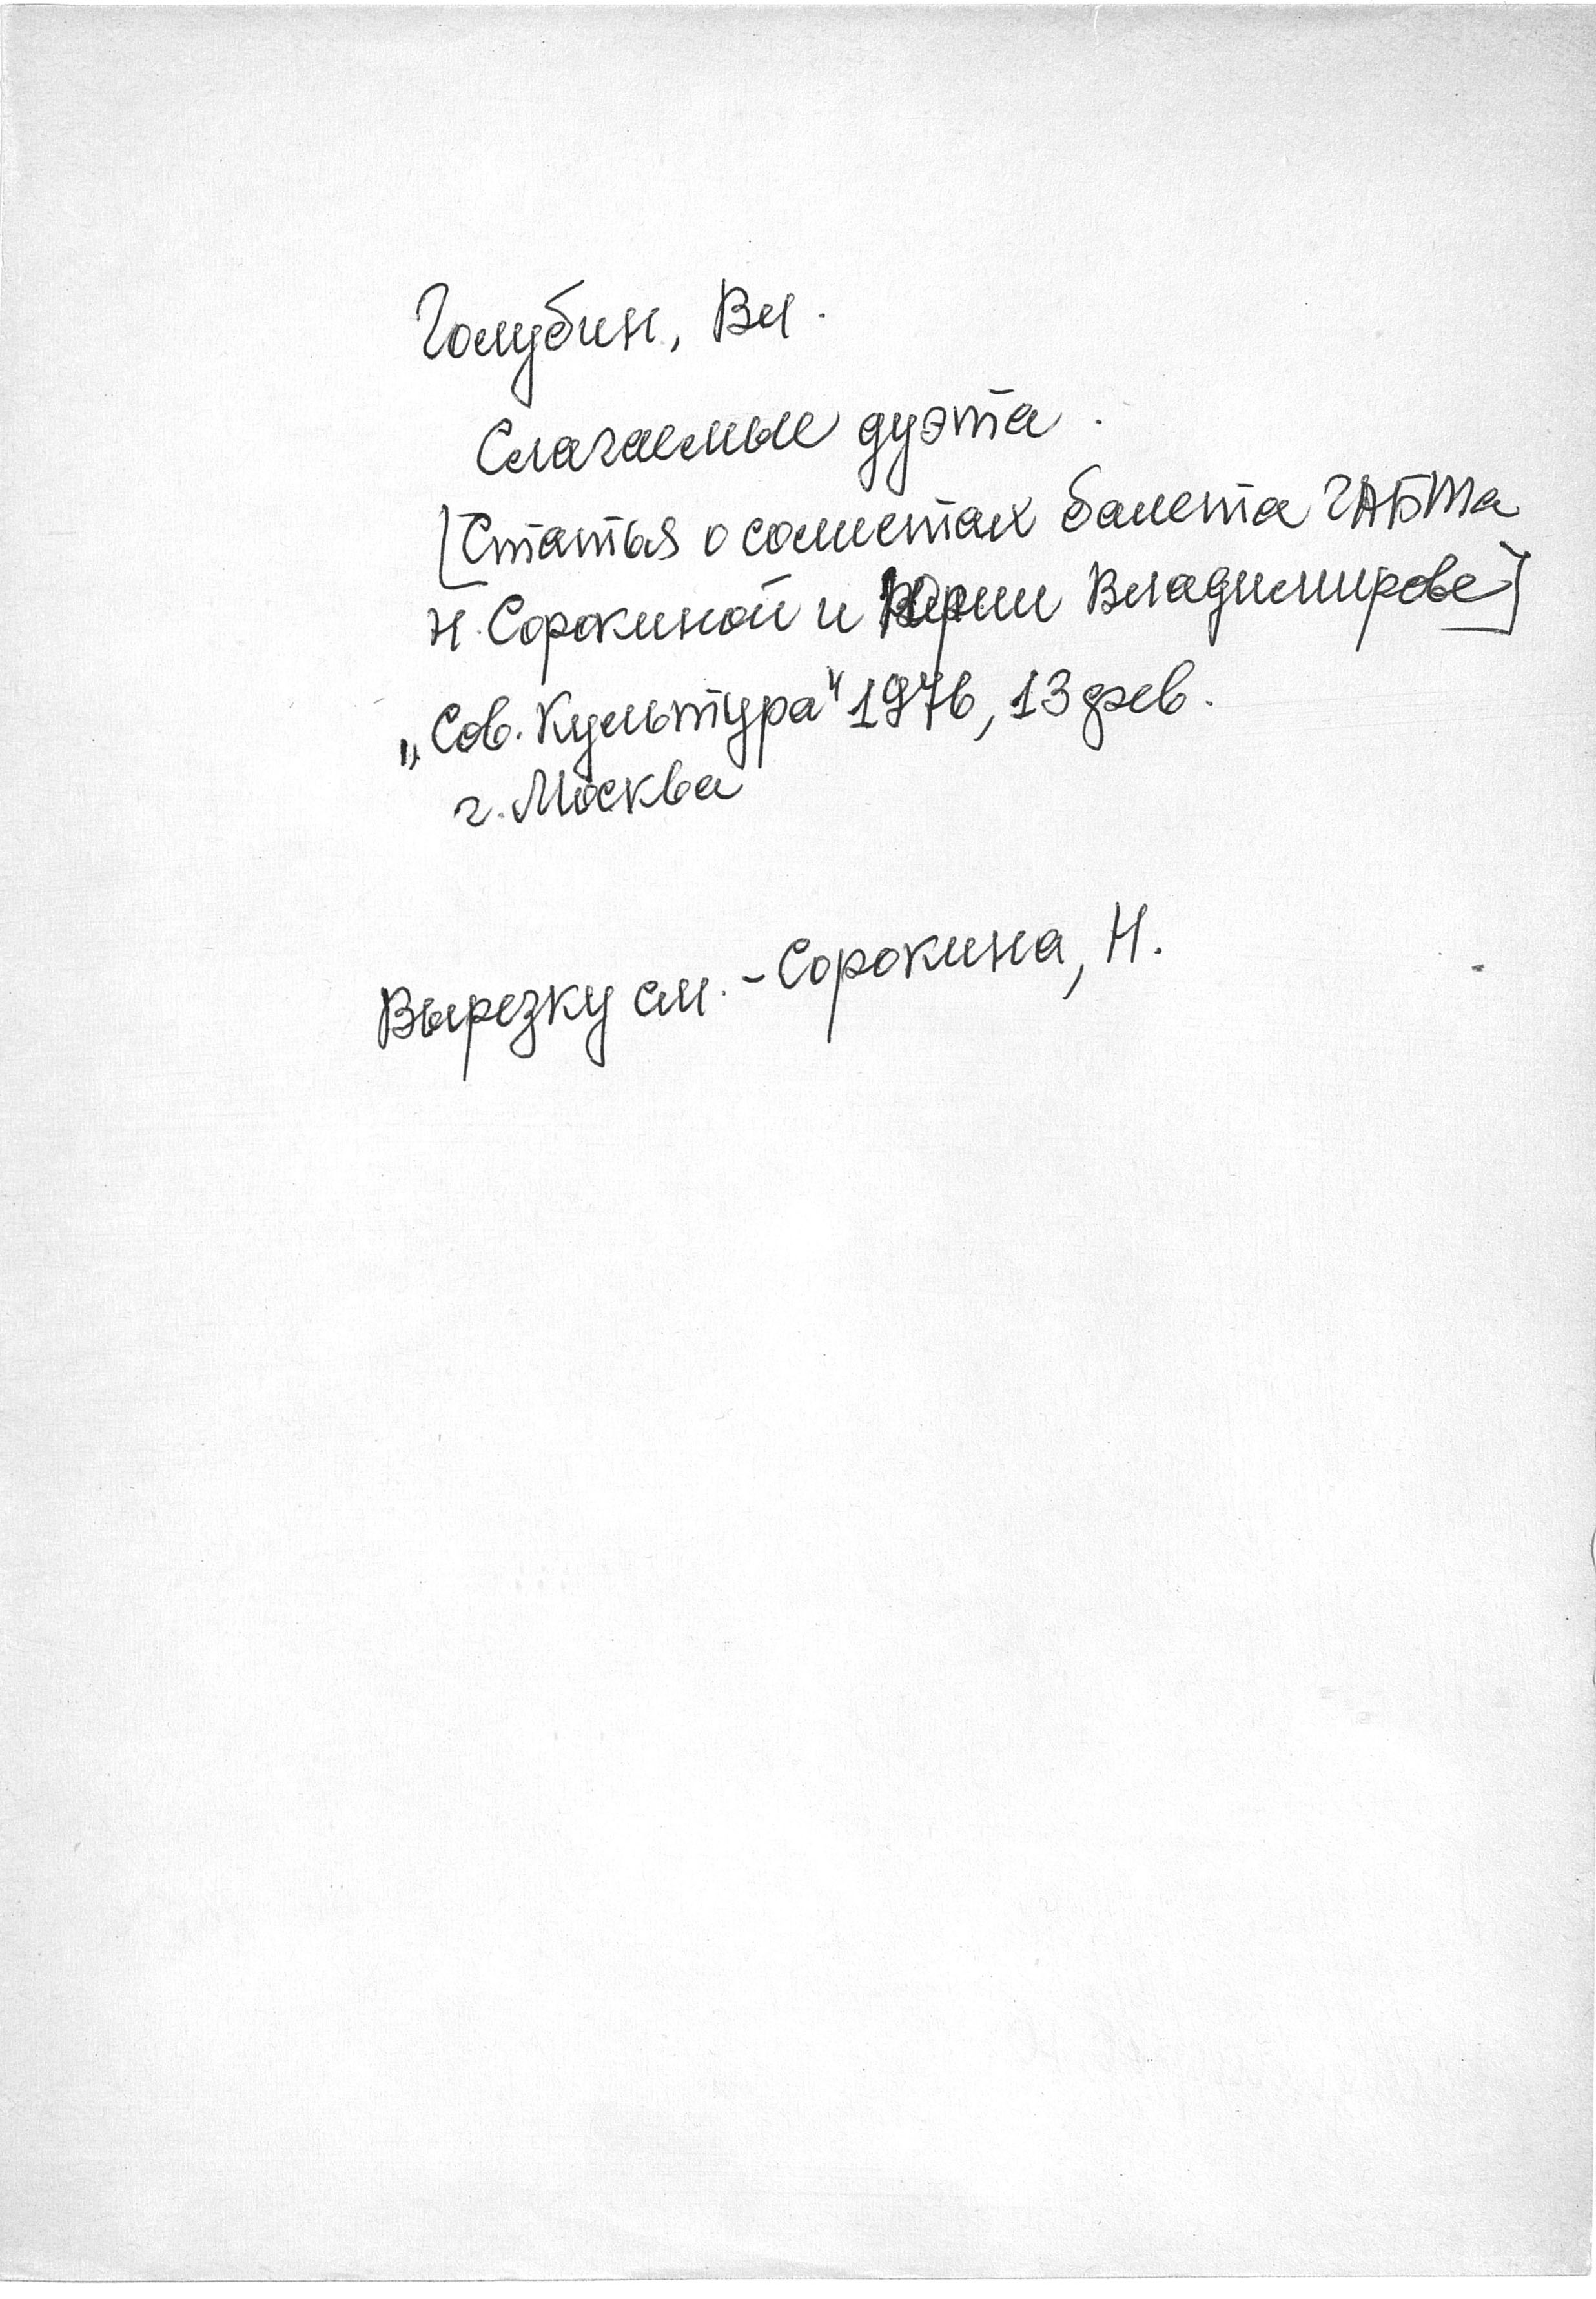 Голубин, Вл.
Слагаемые дуэта.
[Статья о солистах балета ГАБТа
Н. Сорокиной и Юрии Владимирове]
„Сов. Культура" 1976, 13 фев.
г. Москва
Вырезку см. - Сорокина, Н.